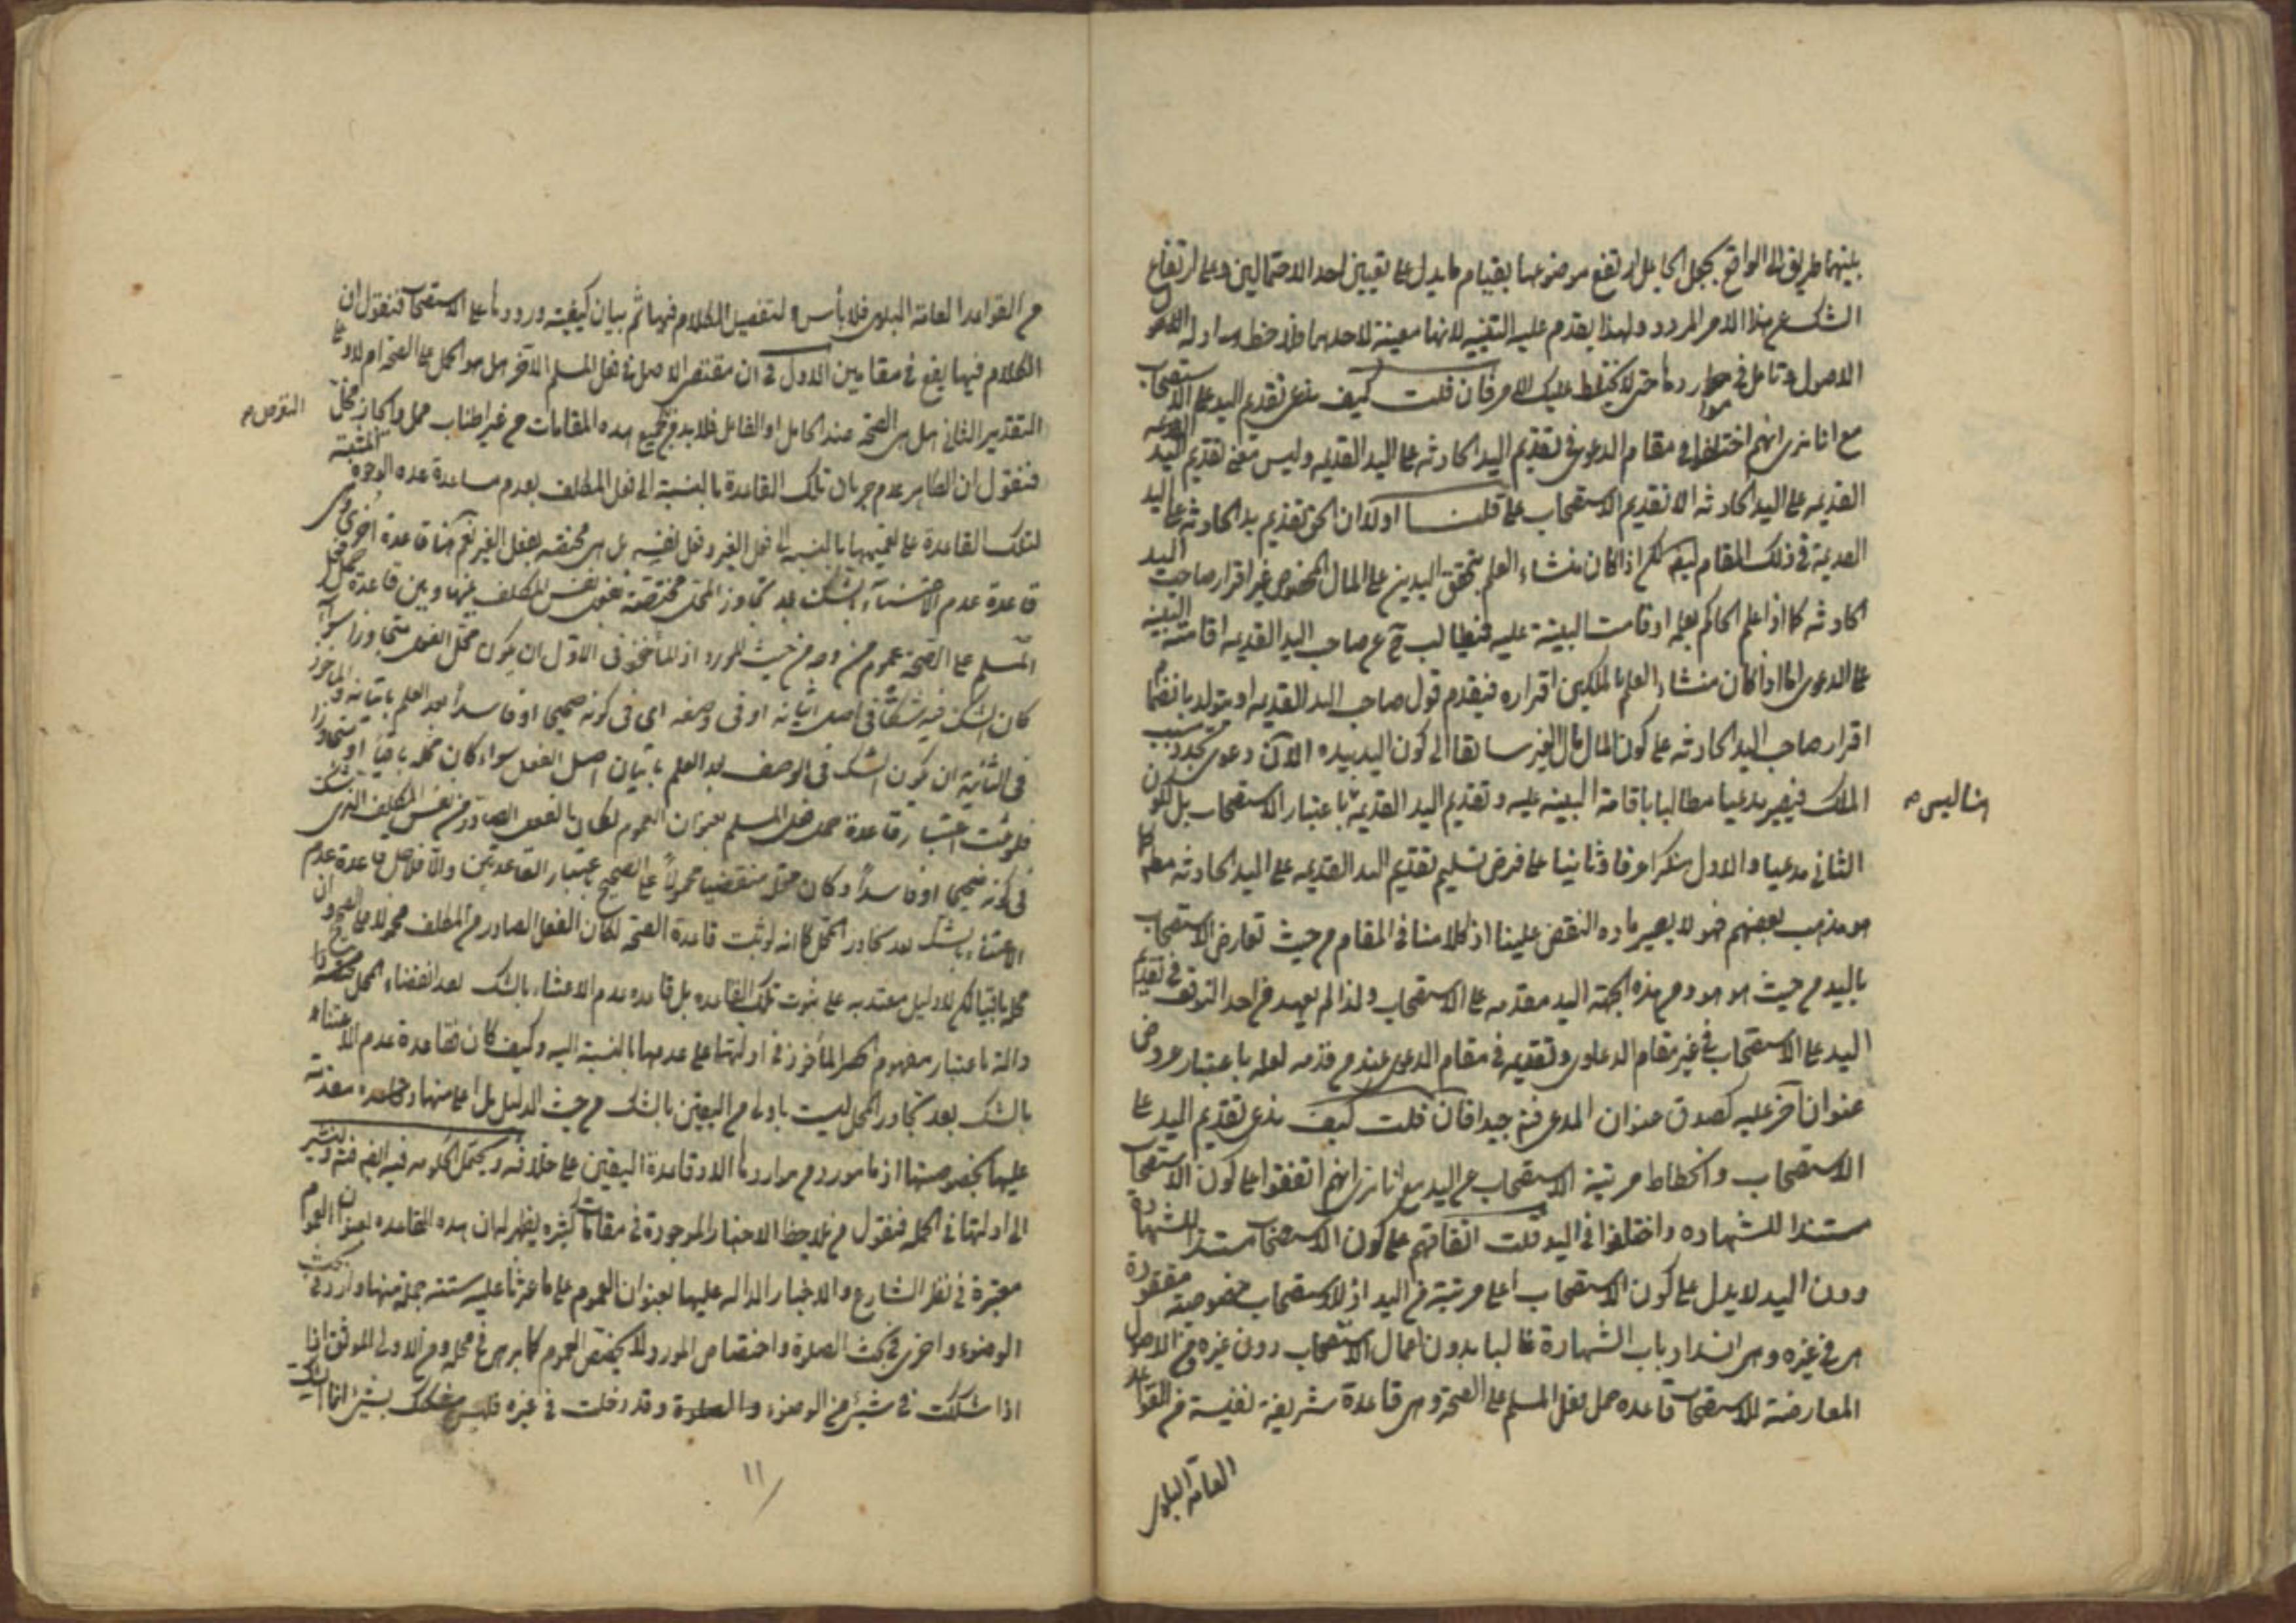 بينهما طريق الى الواقع بجعل الجاعل ارتفع موضوعها بقيام ما يدل على تعيين احد الاحتمالين وعلى ارتفاع
الشك عن هذا الامر المردد ولهذا يقدم عليه البينة لانها معينة لاحدهما فلاحظ ادلة
الاصول وتامل في مواردها حتى لا يختلط عليك الامر فان قلت كيف تدعى تقديم اليد على الاستصحاب
مع انا نرى انهم اختلفوا في مقام الدعوى في تقديم اليد الحادثه على اليد القديمه وليس معنى تقديم اليد
القديمه على اليد الحادثه الا تقديم الاستصحاب على اليد قلنا اولا ان الحق تقديم يد الحادثه على اليد
القديمة في ذلك المقام ايضا لكن اذا كان منشاء العلم بتحقق اليدين على المال المخصوص غير اقرار صاحب اليد
الحادثه كما اذا علم الحاكم بعلمه او قامت البينة عليه فيطالب ح عن صاحب اليد القديمه اقامة البينه
على الدعوى اما اذا كان منشاء العلم بالملكين اقراره فيقدم قول صاحب اليد القديمه اذ يتولد بانضمام
اقرار صاحب اليد الحادثه على كون المال مال الغير سابقا الى كون اليد بيده الآن دعوى تجدد سبب
الملك فيصير مدعيا مطالبا باقامة البينه عليه وتقديم اليد القديمة باعتبار الاستصحاب بل لكون
هنا ليس
الثاني مدعيا والاول منكرا عرفا وثانيا على فرض تسليم تقديم اليد القديمه على اليد الحادثه مطلقا كما
هو مذهب بعضهم فهو لا يصير مادة النقض علينا اذ كلامنا في المقام من حيث تعارض الاستصحاب
باليد من حيث هو هو ومن هذه الجهة اليد مقدمه على الاستصحاب ولذا لم يعهد من احد التوقف في تقديم
اليد على الاستصحاب في غير مقام الدعاوى وتقديمه في مقام الدعوى عند من قدمه لعله باعتبار عروض
عنوان آخر عليه كصدق عنوان المدعى فتنبه جيدا فان قلت كيف تدعى تقديم اليد على
الاستصحاب وانحطاط مرتبة الاستصحاب عن اليد مع انا نرى انهم اتفقوا على كون الاستصحاب
مستندا للشهاده واختلفوا في اليد قلت اتفاقهم على كون الاستصحاب مستند للشهادة
دون اليد لا يدل على كون الاستصحاب اعلى مرتبة من اليد اذ للاستصحاب خصوصية مفقودة
هي في غيره وهي انسداد باب الشهادة غالبا بدون اعمال الاستصحاب دون غيره ومن الاصول
المعارضة للاستصحاب قاعده حمل فعل المسلم على الصحة وهي قاعدة شريفة نفيسة من القواعد
العامة البلوى
من القواعد العامة البلوى فلا باس لتفصيل الكلام فيها ثم بيان كيفية ورودها على الاستصحاب فنقول ان
الكلام فيها يقع في مقامين الاول في ان مقتضى الاصل في فعل المسلم الآخر هل هو الحمل على الصحة ام لا وعلى
التقدير الثاني هل هي الصحة عند الحامل او الفاعل فلابد في جميع هذه المقامات من غير اطناب ممل وايجاز مخل
التعرض
فنقول ان الظاهر عدم جريان تلك القاعدة بالنسبة الى فعل المكلف بعدم مساعدة هذه الوجوه المثبتة
لتلك القاعدة على تعميمها بالنسبه الى فعل الغير وفعل نفسه بل هي مختصه بفعل الغير نعم هنا قاعدة اخرى وهي
قاعدة عدم الاعتناء بالشك بعد تجاوز المحل مختصة بفعل نفس المكلف بينها وبين قاعدة حمل فعل
المسلم على الصحة عموم من وجه من حيث المورد اذ المأخوذ في الاول ان يكون محل الفعل متجاوزا سواء
كان الشك فيه شكا في اصل اتيانه او في وصفه اى في كونه صحيحا او فاسدا بعد العلم باتيانه والماخوذ
في الثانية ان يكون الشك في الوصف بعد العلم باتيان اصل الفعل سواء كان محله باقيا او متجاوزا
فلو ثبت اعتبار قاعدة حمل فعل المسلم بعنوان العموم لكان الفعل الصادر من نفس المكلف الذى شك
في كونه صحيحا او فاسدا وكان محله منقضيا محمولا على الصحيح باعتبار القاعدتين والا فلاصل قاعدة عدم
الاعتناء بالشك بعد تجاوز المحل كما انه لو ثبت قاعدة الصحة لكان الفعل الصادر من المكلف محمولا على الصحة وان كان
محله باقيا لكن لا دليل معتد به على ثبوت تلك القاعده بل قاعده عدم الاعتناء بالشك بعد انقضاء المحل
دالة باعتبار مفهوم الحصر المأخوذ في ادلتها على عدمها بالنسبة اليه وكيف كان فقاعدة عدم الاعتناء
بالشك بعد تجاوز المحل ليست باولى من اليقين بالشك من حيث الدليل بل اعلى منها مقدمة
عليها بخصوصيتها اذ ما من مورد من مواردها الا وقاعدة اليقين على خلافه فيه فتدبر ولنشير
الى ادلتها في الجمله فنقول من يلاحظ الاخبار الموجودة في مقامات كثيره يظهر له ان هذه القاعده بعنوان العموم
معتبرة في نظر الشارع والاخبار الداله عليها بعنوان العموم على ما عثرنا عليه ستة جملة منها واردة في بحث
الوضوء واخرى في بحث الصلوة واختصاص المورد لا يخصص العموم كما برهن في محله ومن الاولى الموثق
اذا شككت في شيئ من الوضوء وقد دخلت في غيره فليس شكك بشيئ انما الشك
١١